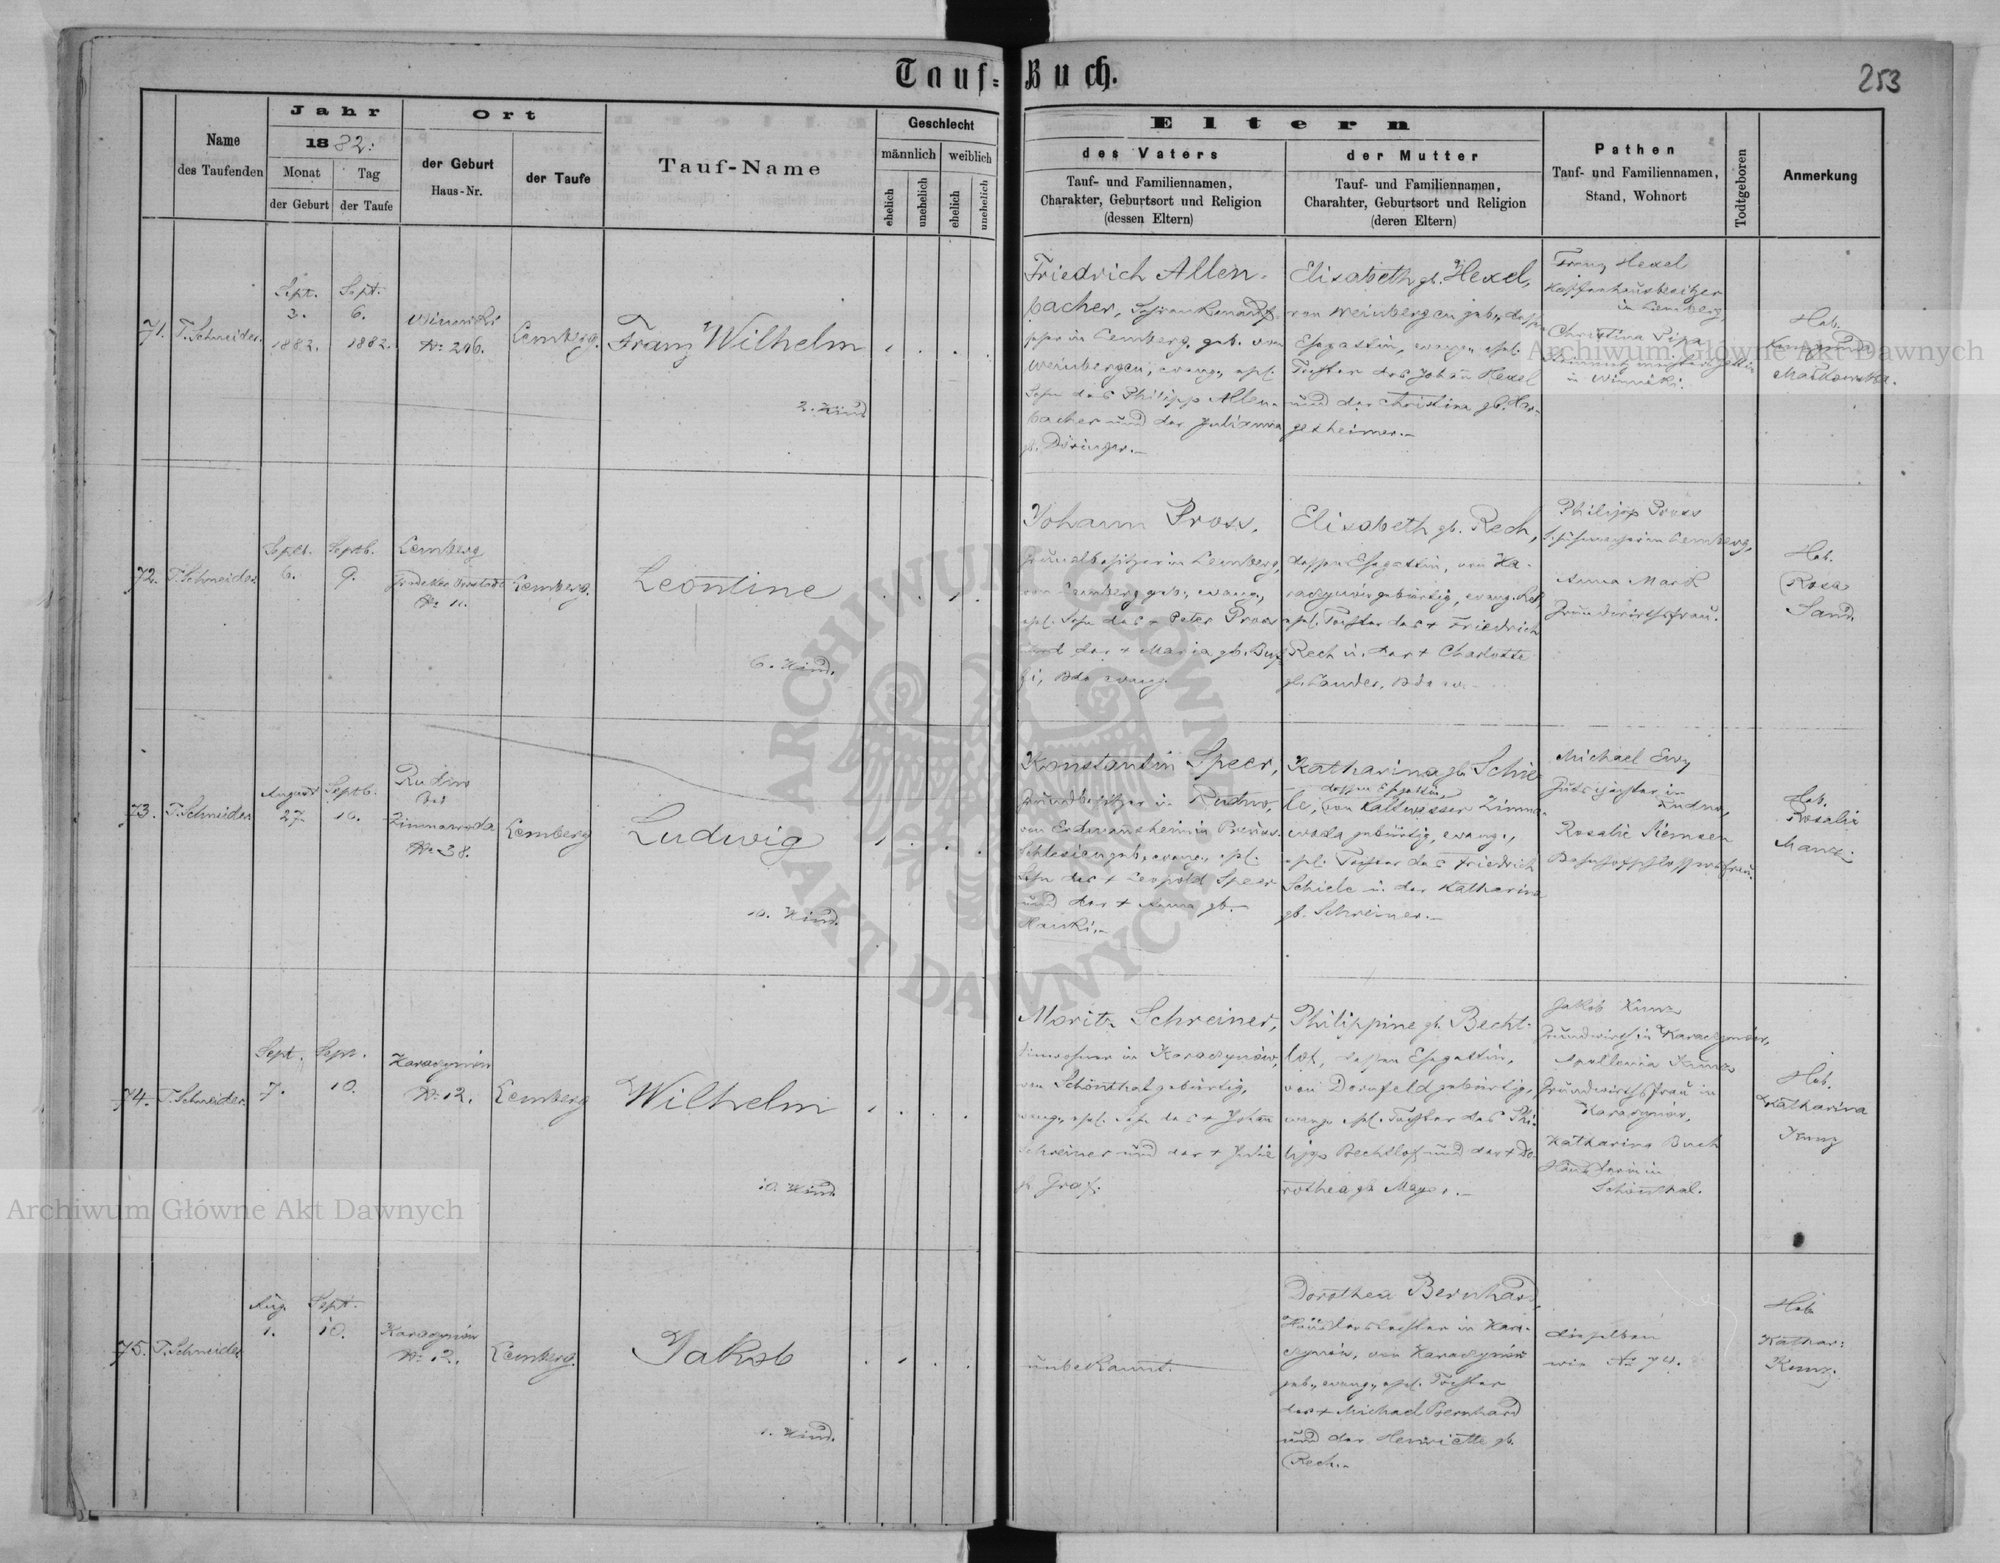 Tauf-Buch.
253
Name des Taufenden
Jahr
1882:
Monat der Geburt
Tag der Taufe
Ort
der Geburt Haus-Nr.
der Taufe
Tauf-Name
Geschlecht
männlich
weiblich
ehelich
unehelich
ehelich
unehelich
Eltern
des Vaters
Tauf- und Familiennamen,
Charakter, Geburtsort und Religion
(dessen Eltern)
der Mutter
Tauf- und Familiennamen,
Charahter, Geburtsort und Religion
(deren Eltern)
Pathen
Tauf- und Familiennamen,
Stand, Wohnort
Todtgeboren
Anmerkung
71.
T. Schneider.
Sept.
3.
1882.
Sept.
6.
1882.
Winniki
Nr. 206.
Lemberg.
Franz Wilhelm
2. Kind
Friedrich Allen-
bacher,
in Lemberg, geb. von
Weinbergen, evang.
Sohn des Philipp Allen-
bacher und der Julianna
gb. Döringer.
Elisabeth gb. Hexel,
von Weinbergen geb.,
Ehegattin, evang.
Tochter des Johann Hexel
und der Christina gb. Har-
gesheimer.
Franz Hexel
Kaffeehausbesitzer
in Lemberg,
Christina
in Winniki.
Heb.
72.
T. Schneider
Sept.
6.
Septb.
9.
Lemberg
Grodeker Vorstadt
Nr. 11.
Lemberg.
Leontine
6. Kind.
Johann Pross,
Grundbesitzer in Lemberg,
von Lemberg geb., evang.,
Sohn des + Peter Pross
und der + Maria gb.
Elisabeth gb. Rech,
dessen Ehegattin, von Ka-
raczynów gebürtig, evang.
Tochter des + Friedrich
Rech u. der + Charlotte
gb. Lander,
Philipp Pross
in Lemberg,
Anna Mark
Grundwirthsfrau.
Heb.
Rosa
Sand.
73.
T. Schneider
August
27.
Septb.
10.
Rudno
bei
Zimnawoda
Nr. 38.
Lemberg
Ludwig
10. Kind.
Konstantin Speer,
Grundbesitzer in Rudno,
von Erdmansheim in Preuss.
Schlesien geb., evang.,
Sohn des + Leopold Speer
und der + Anna gb.
Katharina gb. Schie-
dessen Ehegattin,
le, von Kaltwasser Zimna-
woda gebürtig, evang.,
Tochter des Friedrich
Schiele u. der Katharina
gb. Schreiner.
Michael
Gutspächter in
Rudno,
Rosalie Siemsen
Heb.
Rosalia
74.
T. Schneider.
Sept.
7.
Sept.
10.
Karaczynów
Nr. 12.
Lemberg
Wilhelm
10. Kind
Moritz Schreiner,
Einwohner in Karaczynów,
von Schönthal gebürtig,
evang. Sohn des + Johann
Schreiner und der + Julie
gb. Graf.
Philippine gb. Becht-
lof, dessen Ehegattin,
von Dornfeld gebürtig,
evang. Tochter des Phi-
lipp Bechtlof und der + Do-
rothea gb. Mayer.
Jakob Kunz
Grundwirth in Karaczynów,
Apollonia Kunz
Grundwirthsfrau in
Karaczynów,
Katharina Buch
in
Schönthal.
Heb.
Katharina
Kunz
75.
T. Schneider
Aug.
1.
Sept.
10.
Karaczynów
Nr. 12.
Lemberg.
Jakob
1. Kind.
unbekannt.
Dorothea Bernhard,
Häuslerstochter in Kara-
czynów, von Karaczynów
geb., evang., Tochter
des + Michael Bernhard
und der Henriette gb.
Rech.
dieselben
wie Nr. 74.
Heb.
Kathar:
Kunz.
Archiwum Główne Akt Dawnych
Archiwum Główne Akt Dawnych
ARCHIWUM GŁÓWNE AKT DAWNYCH